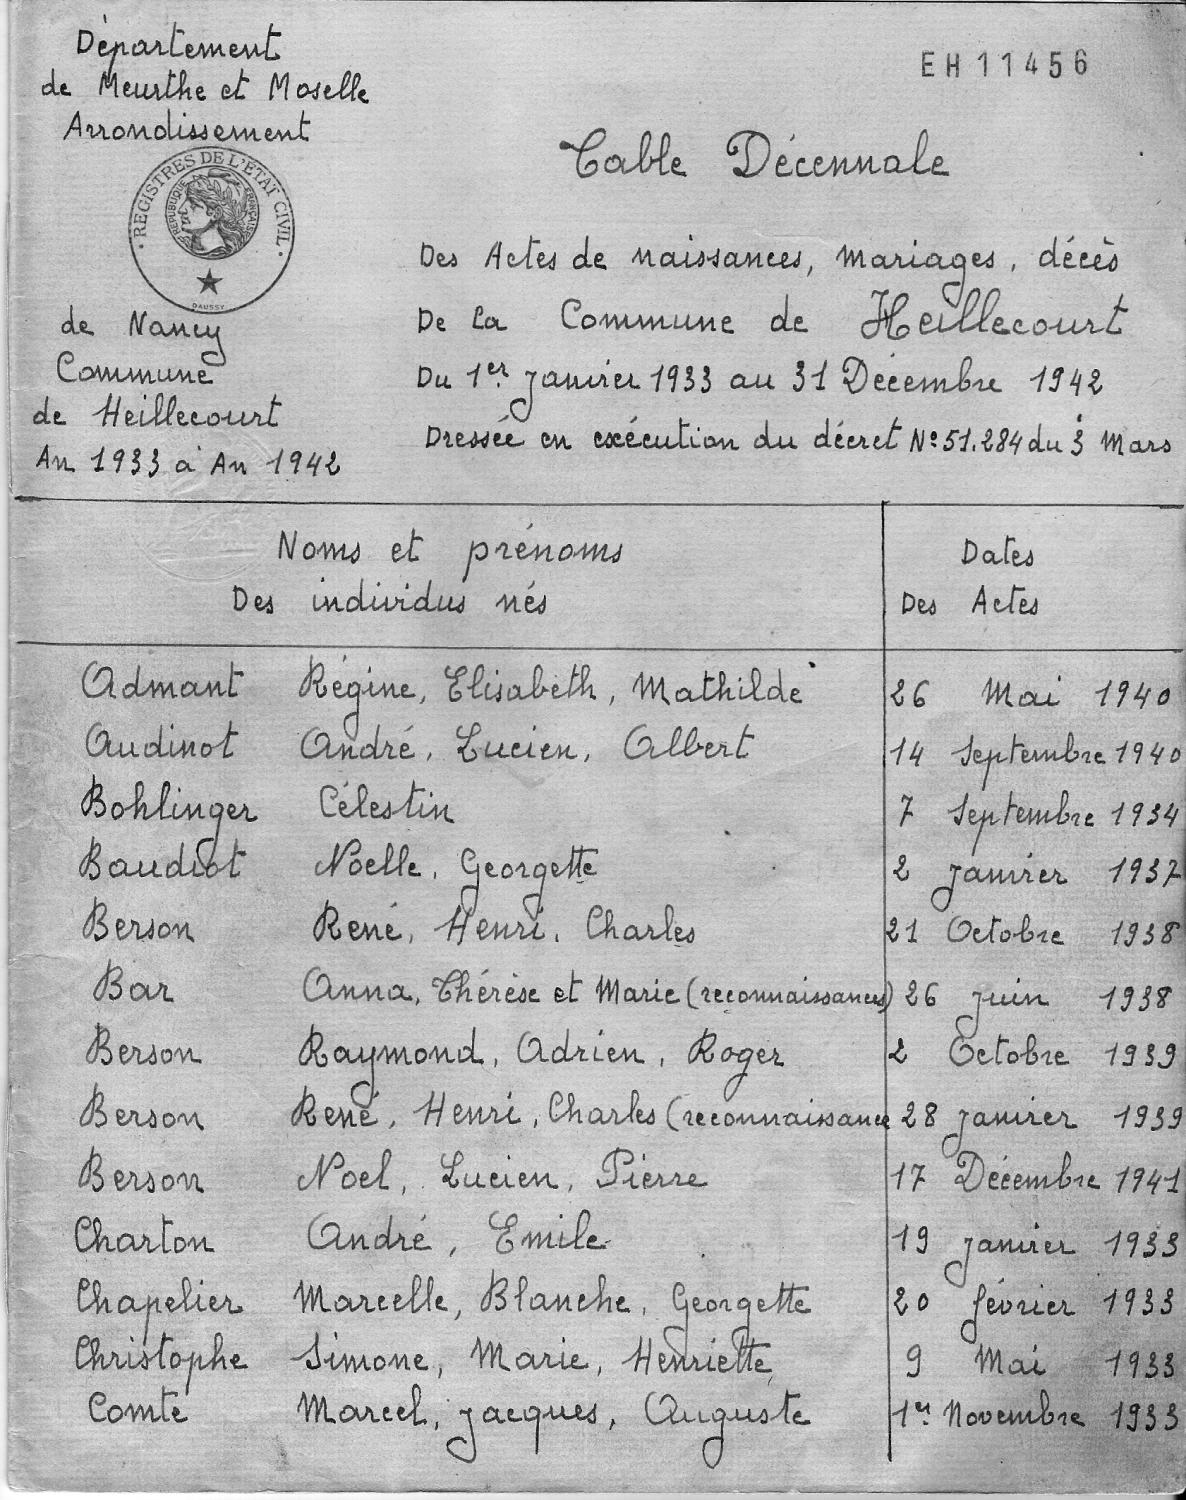 Département
de Meurthe et Moselle
Arrondissement
REGISTRES DE L'ÉTAT CIVIL
RÉPUBLIQUE FRANÇAISE
DAUSSY
de Nancy
Commune
de Heillecourt
An 1933 à An 1942
EH11456
Table Décennale
Des Actes de naissances, mariages, décès
De La Commune de Heillecourt
Du 1er janvier 1933 au 31 Décembre 1942
Dressée en exécution du décret N° 51.284 du 3 Mars
Noms et prénoms
Des individus nés
Dates
Des Actes
Admant Régine, Elisabeth, Mathilde 26 Mai 1940
Audinot André, Lucien, Albert 14 Septembre 1940
Bohlinger Célestin 7 Septembre 1934
Baudiot Noelle, Georgette 2 janvier 1937
Berson René, Henri, Charles 21 Octobre 1938
Bar Anna, Thérèse et Marie (reconnaissances) 26 juin 1938
Berson Raymond, Adrien, Roger 2 Octobre 1939
Berson René, Henri, Charles (reconnaissance 28 janvier 1939
Berson Noel, Lucien, Pierre 17 Décembre 1941
Charton André, Emile 19 janvier 1933
Chapelier Marcelle, Blanche, Georgette 20 février 1933
Christophe Simone, Marie, Henriette, 9 Mai 1933
Comte Marcel, jacques, Auguste 1er Novembre 1933